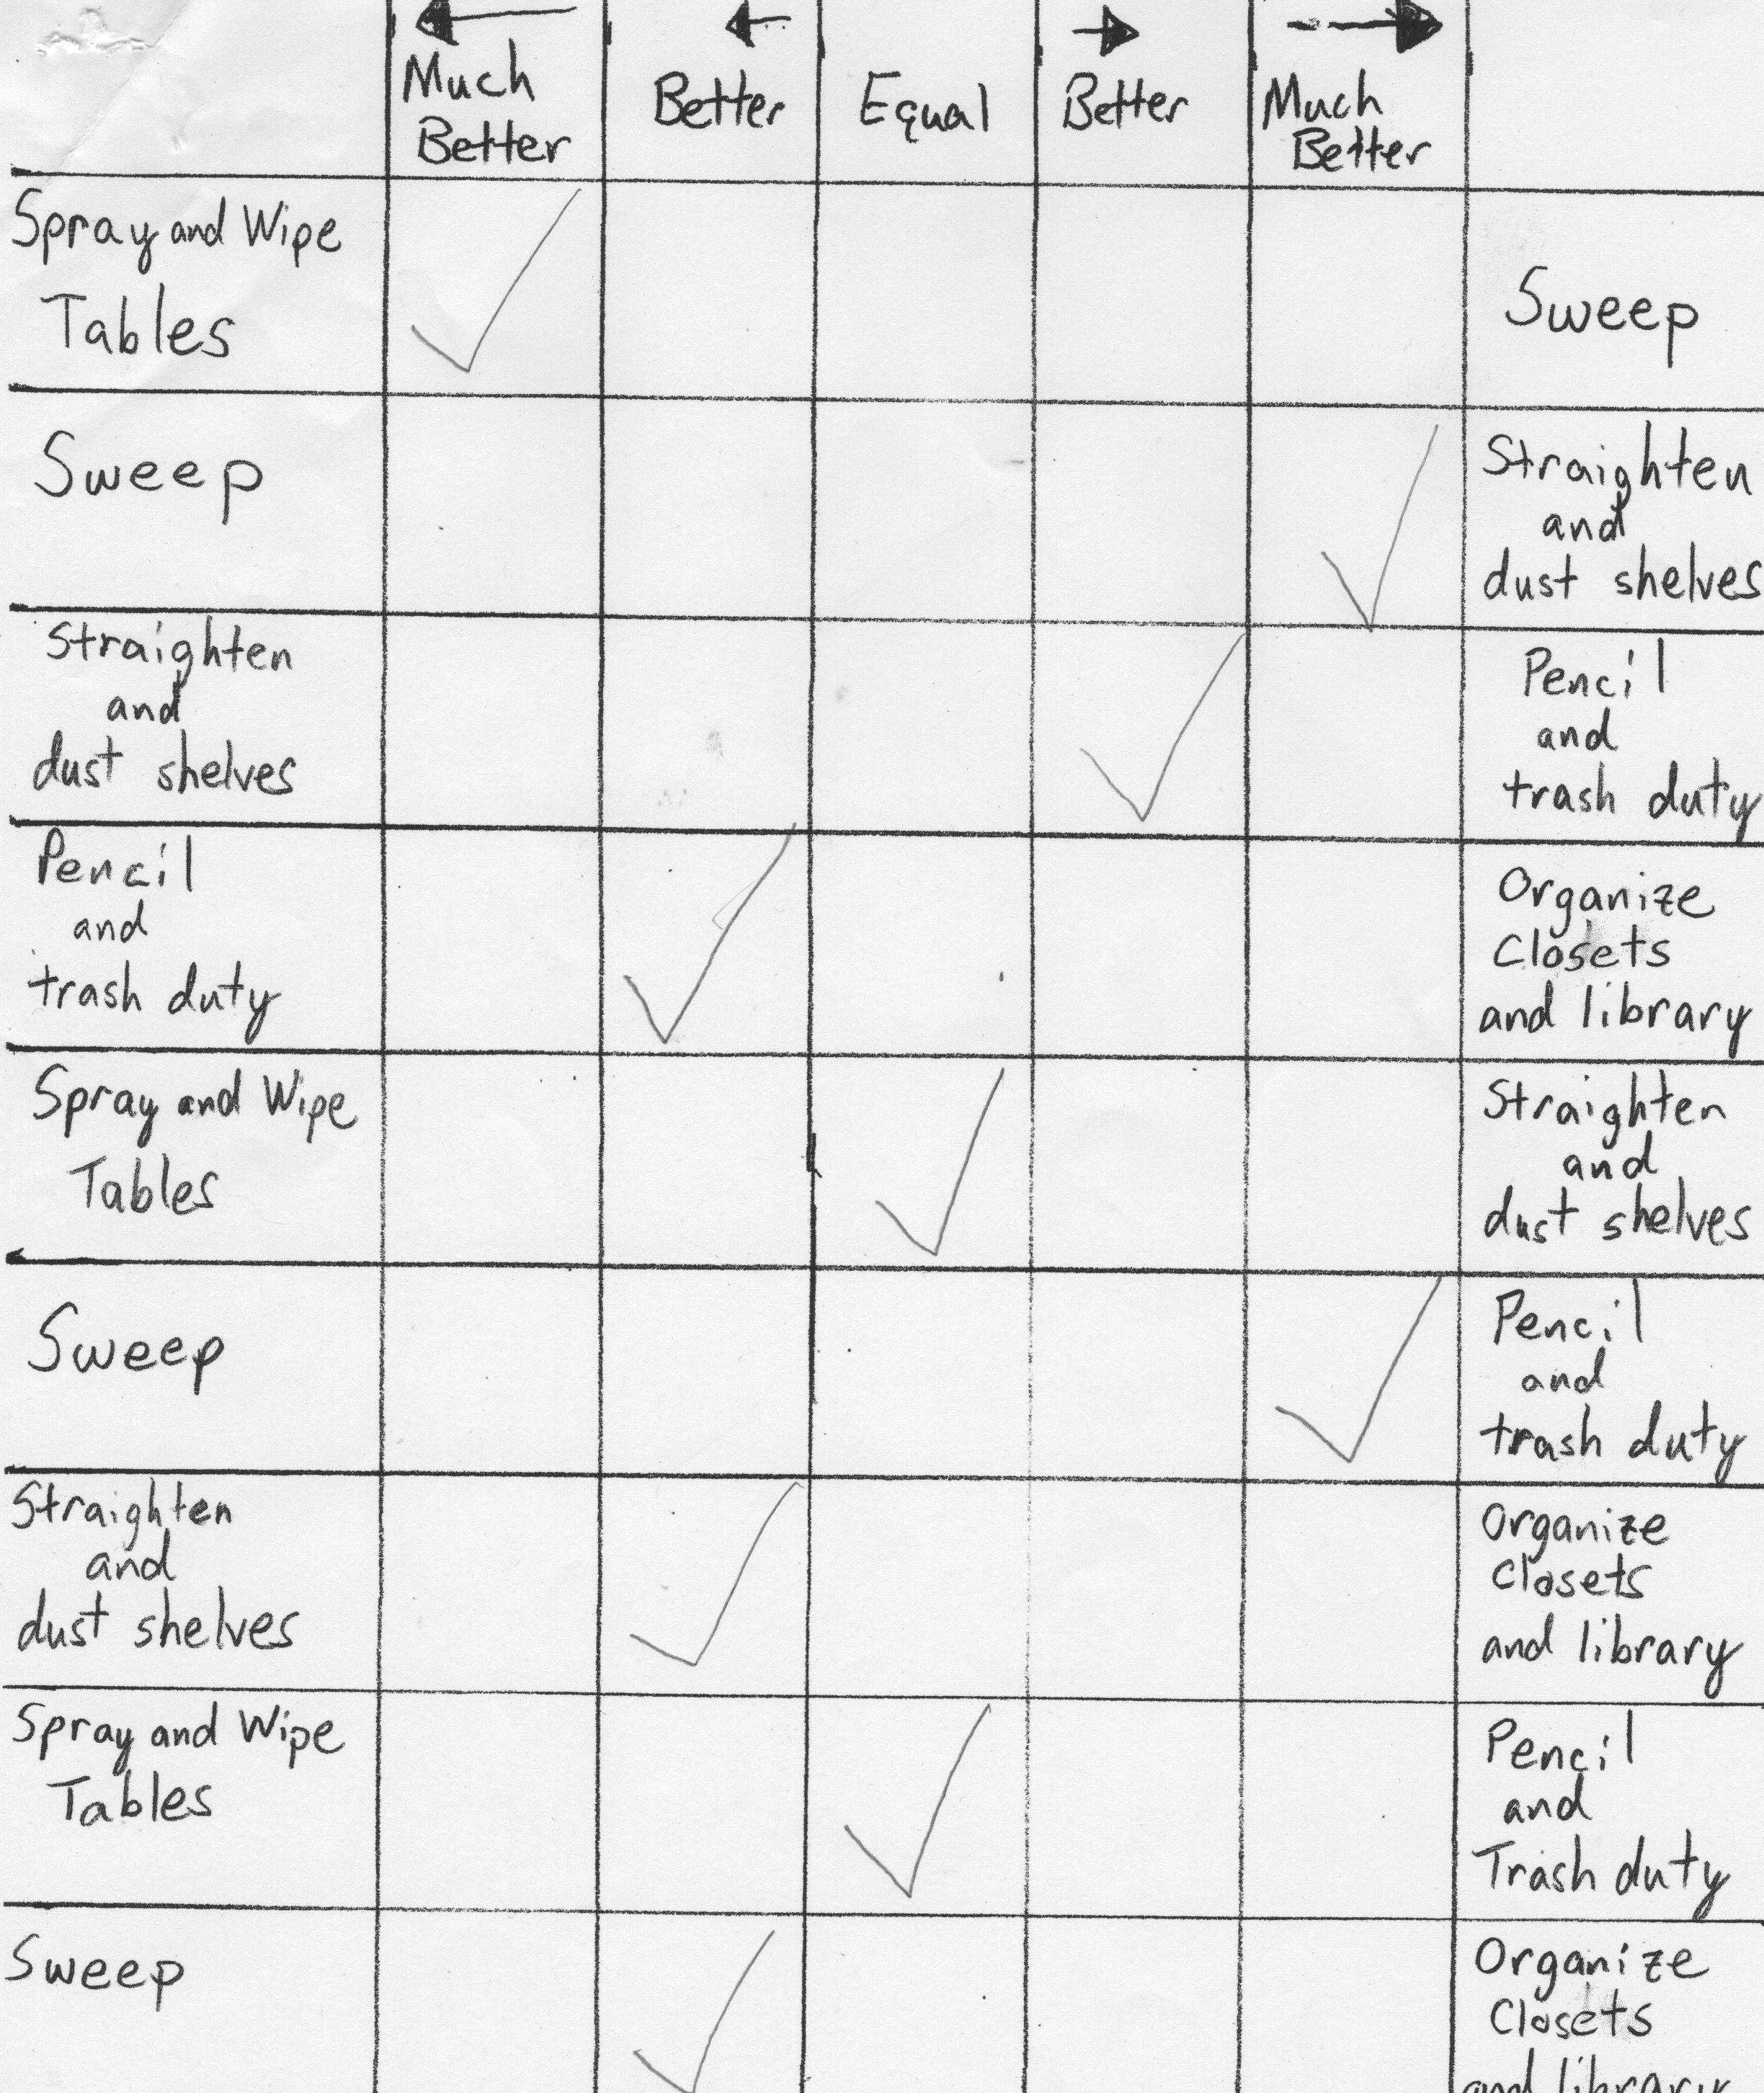 Much Better
Better
Equal
Better
Much Better
Spray and Wipe
Tables
Sweep
Sweep
Straighten
and
dust shelves
Straighten
and
dust shelves
Pencil
and
trash duty
Pencil
and
trash duty
Organize
Closets
and library
Spray and Wipe
Tables
Straighten
and
dust shelves
Sweep
Pencil
and
trash duty
Straighten
and
dust shelves
Organize
Closets
and library
Spray and Wipe
Tables
Pencil
and
Trash duty
Sweep
Organize
Closets
and library